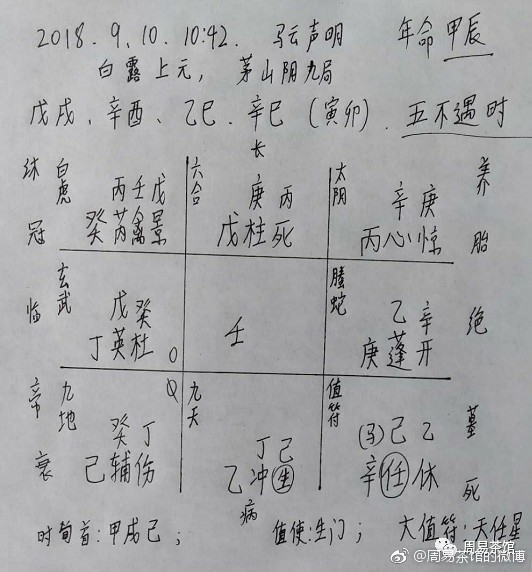 2018.9.10.10:42. 马云声明 年命甲辰
白露上元，茅山阴九局
戊戌、辛酉、乙巳、辛巳（寅卯）．五不遇时
沐 白虎 丙壬戊 六合 长 庚丙 太阴 辛庚 养
冠 癸芮禽景 戊柱死 丙心惊 胎
临 玄武 戊癸 壬 螣蛇 乙辛 绝
丁英杜 O 庚蓬开
帝 九地 癸丁 O 九天 丁己 值符 (马)己乙 墓
衰 己辅伤 乙冲生 辛任休 死
病
时旬首:甲戌己； 值使:生门； 大值符:天任星
周易茶馆
@周易茶馆的微博